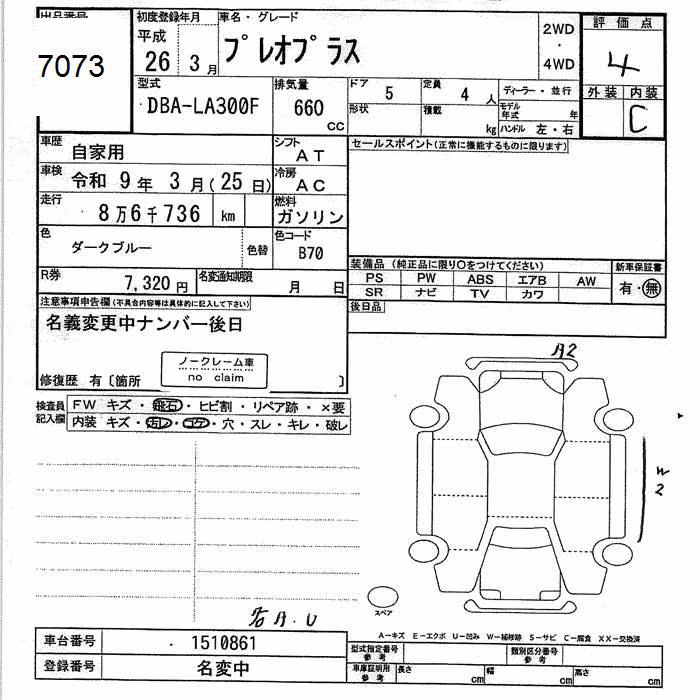 出品番号 初度登録年月 車名・グレード 評価点
7073 平成 26年 3月 プレオプラス 2WD・4WD 4
型式 排気量 ドア 5 定員 4人 ディーラー・並行 外装 内装
DBA-LA300F 660 CC 形状 積載 kg モデル年式 年 ハンドル 左・右 C
車歴 自家用 シフト AT セールスポイント(正常に機能するものに限ります)
車検 令和 9年 3月(25日) 冷房 AC
走行 8万6千736 km 燃料 ガソリン
色 ダークブルー 色替 色コード B70
装備品 (純正品に限り○をつけてください) 新車保証書
PS PW ABS エアB AW 有・無
SR ナビ TV カワ
R券 7,320円 名変通知期限 月 日
後日品
注意事項申告欄(不具合内容等は具体的に記入して下さい)
名義変更中ナンバー後日
ノークレーム車
no claim
修復歴 有〔箇所 〕
A2
検査員記入欄 FW キズ・飛石・ヒビ割・リペア跡・×要
内装 キズ・汚レ・コゲ・穴・スレ・キレ・破レ
W2
スペア
A・U
A-キズ E-エクボ U-凹み W-補修跡 S-サビ C-腐食 XX-交換済
車台番号 1510861 型式指定番号 参考 類別区分番号 参考
登録番号 名変中 車庫証明用 参考 長さ cm 幅 cm 高さ cm